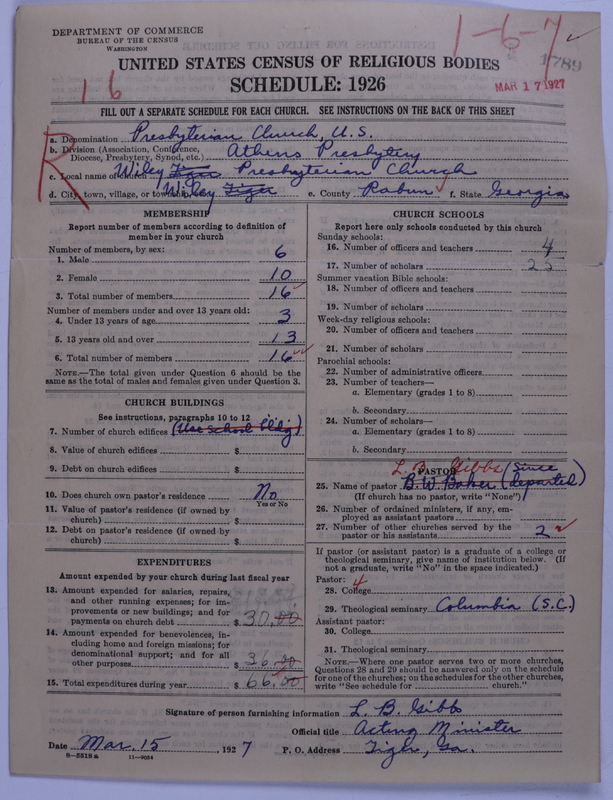 DEPARTMENT OF COMMERCE
BUREAU OF THE CENSUS
WASHINGTON
1-6-7
1789
UNITED STATES CENSUS OF RELIGIOUS BODIES
MAR 17 1927
16
SCHEDULE: 1926
FILL OUT A SEPARATE SCHEDULE FOR EACH CHURCH. SEE INSTRUCTIONS ON THE BACK OF THIS SHEET
R
a. Denomination Presbyterian Church, U.S.
b. Division (Association, Conference, Diocese, Presbytery, Synod, etc.) Athens Presbytery
c. Local name of church Wiley Presbyterian Church
d. City, town, village, or township Wiley Tiger e. County Rabun f. State Georgia
MEMBERSHIP
Report number of members according to definition of
member in your church
Number of members, by sex:
1. Male 6
2. Female 10
3. Total number of members 16
Number of members under and over 13 years old:
4. Under 13 years of age 3
5. 13 years old and over 13
6. Total number of members 16
NOTE.—The total given under Question 6 should be
the same as the total of males and females given under Question 3.
CHURCH BUILDINGS
See instructions, paragraphs 10 to 12
7. Number of church edifices (Use School Bldg)
8. Value of church edifices $
9. Debt on church edifices $
10. Does church own pastor's residence No
Yes or No
11. Value of pastor's residence (if owned by
church) $
12. Debt on pastor's residence (if owned by
church) $
EXPENDITURES
Amount expended by your church during last fiscal year
13. Amount expended for salaries, repairs,
and other running expenses; for im-
provements or new buildings; and for
payments on church debt $ 30.00
14. Amount expended for benevolences, in-
cluding home and foreign missions; for
denominational support; and for all
other purposes $ 36.00
15. Total expenditures during year $ 66.00
CHURCH SCHOOLS
Report here only schools conducted by this church
Sunday schools:
16. Number of officers and teachers 4
17. Number of scholars 25
Summer vacation Bible schools:
18. Number of officers and teachers
19. Number of scholars
Week-day religious schools:
20. Number of officers and teachers
21. Number of scholars
Parochial schools:
22. Number of administrative officers
23. Number of teachers—
a. Elementary (grades 1 to 8)
b. Secondary
24. Number of scholars—
a. Elementary (grades 1 to 8)
b. Secondary
PASTOR
L. B. Gibbs (Since
25. Name of pastor B. W. Baker departed)
(If church has no pastor, write "None")
26. Number of ordained ministers, if any, em-
ployed as assistant pastors
27. Number of other churches served by the
pastor or his assistants 2
If pastor (or assistant pastor) is a graduate of a college or
theological seminary, give name of institution below. (If
not a graduate, write "No" in the space indicated.)
Pastor: 4
28. College
29. Theological seminary Columbia (S.C.)
Assistant pastor:
30. College
31. Theological seminary
NOTE.—Where one pastor serves two or more churches,
Questions 28 and 29 should be answered only on the schedule
for one of the churches; on the schedules for the other churches,
write "See schedule for church."
Signature of person furnishing information L. B. Gibbs
Official title Acting Minister
Date Mar. 15, 1927 P. O. Address Tiger, Ga.
8-5518a 11-9034